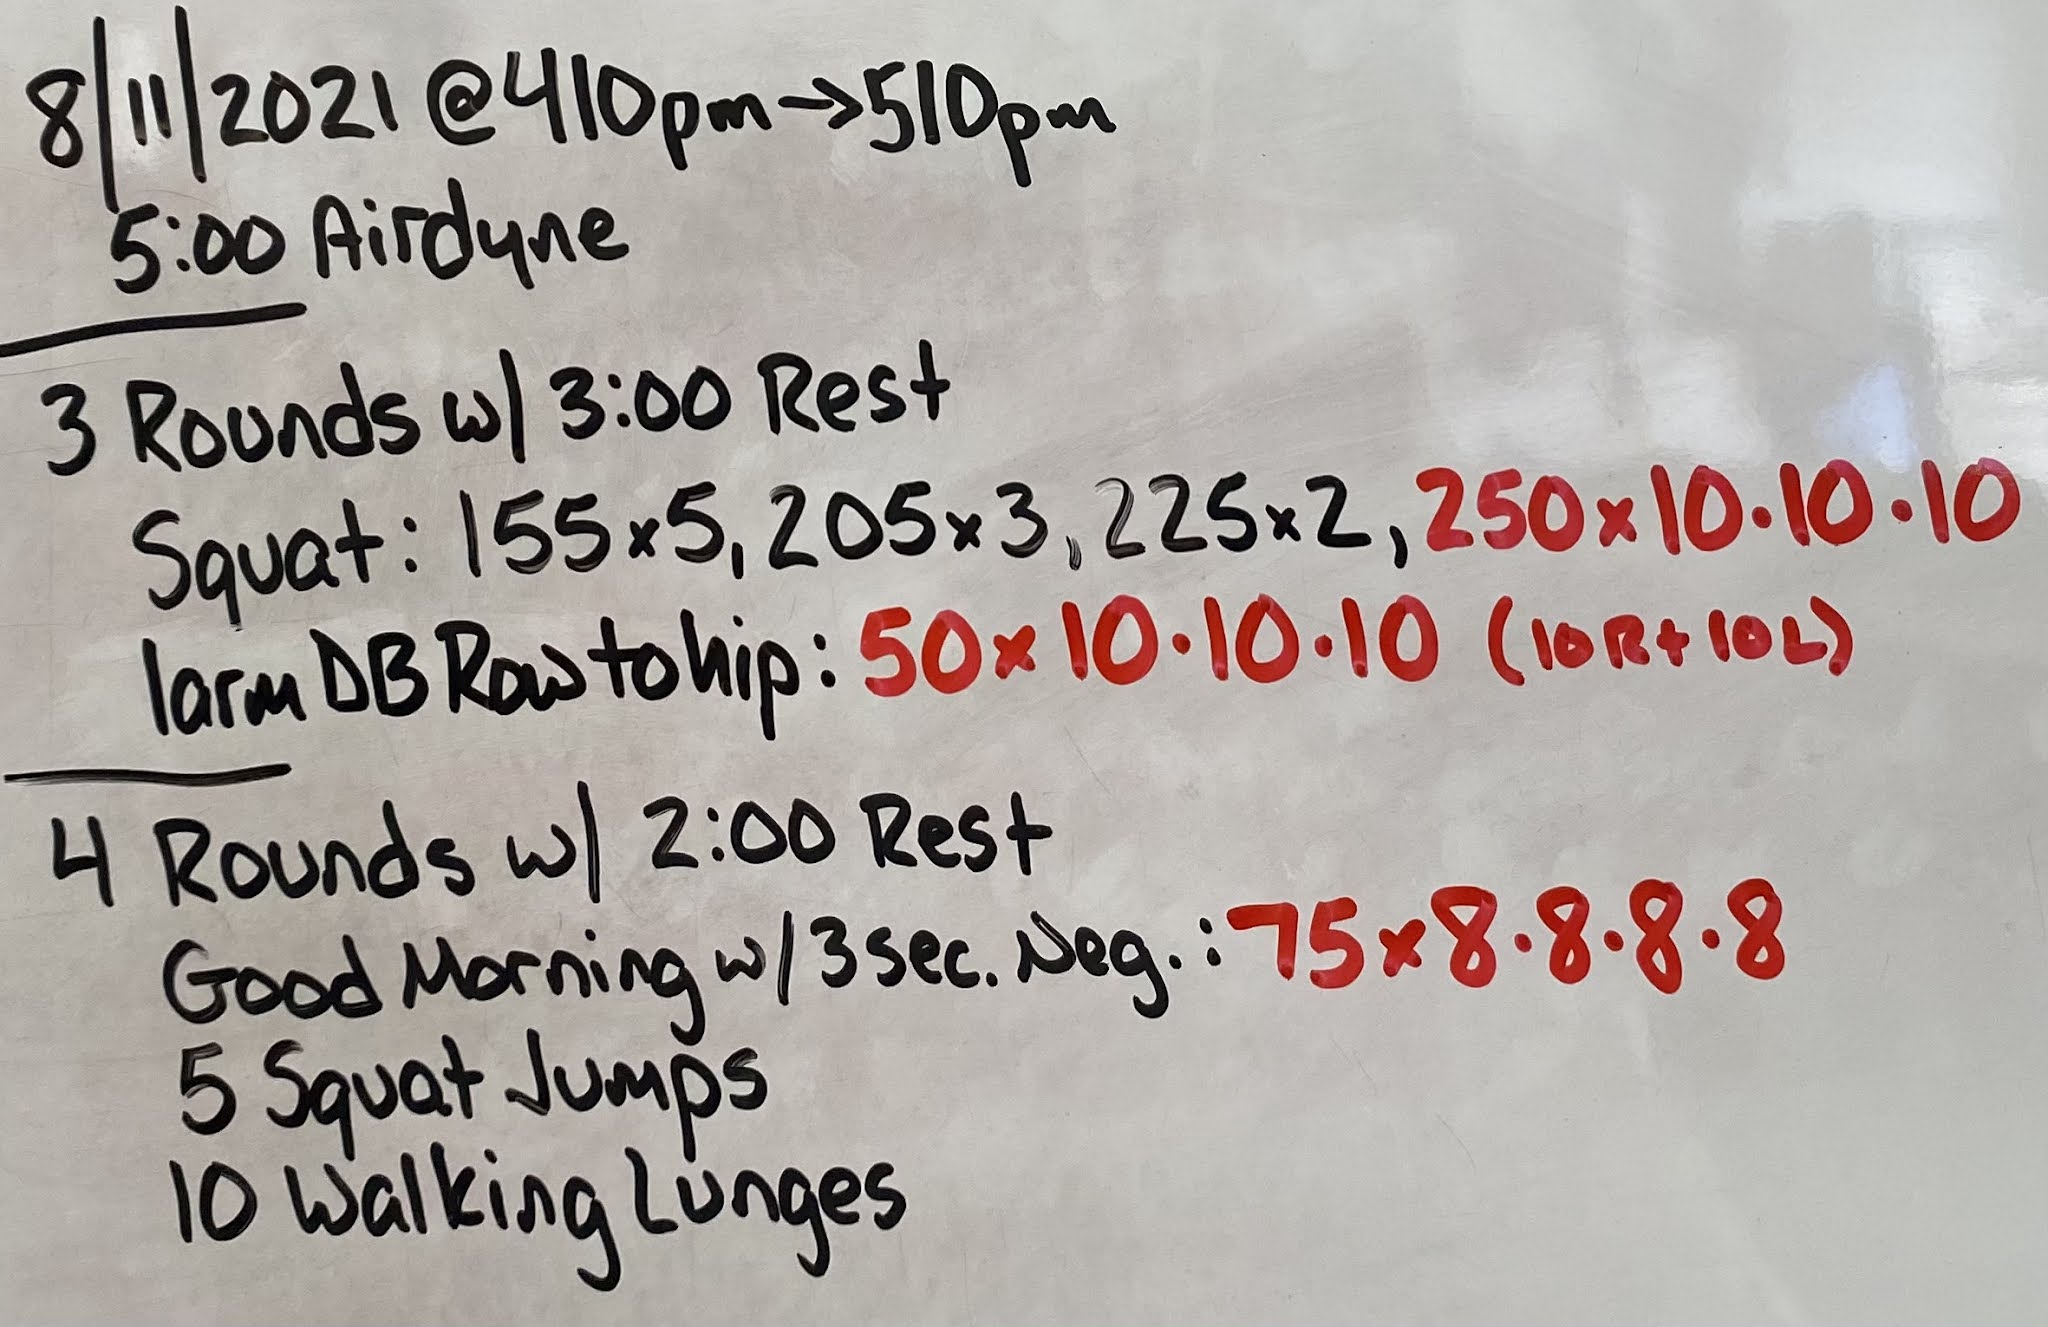 8/11/2021 @410pm→510pm
5:00 Airdyne
3 Rounds w/ 3:00 Rest
Squat: 155x5, 205x3, 225x2, 250x10·10·10
1arm DB Row to hip: 50x10·10·10 (10R+10L)
4 Rounds w/ 2:00 Rest
Good Morning w/3sec. Neg.: 75x8·8·8·8
5 Squat Jumps
10 Walking Lunges